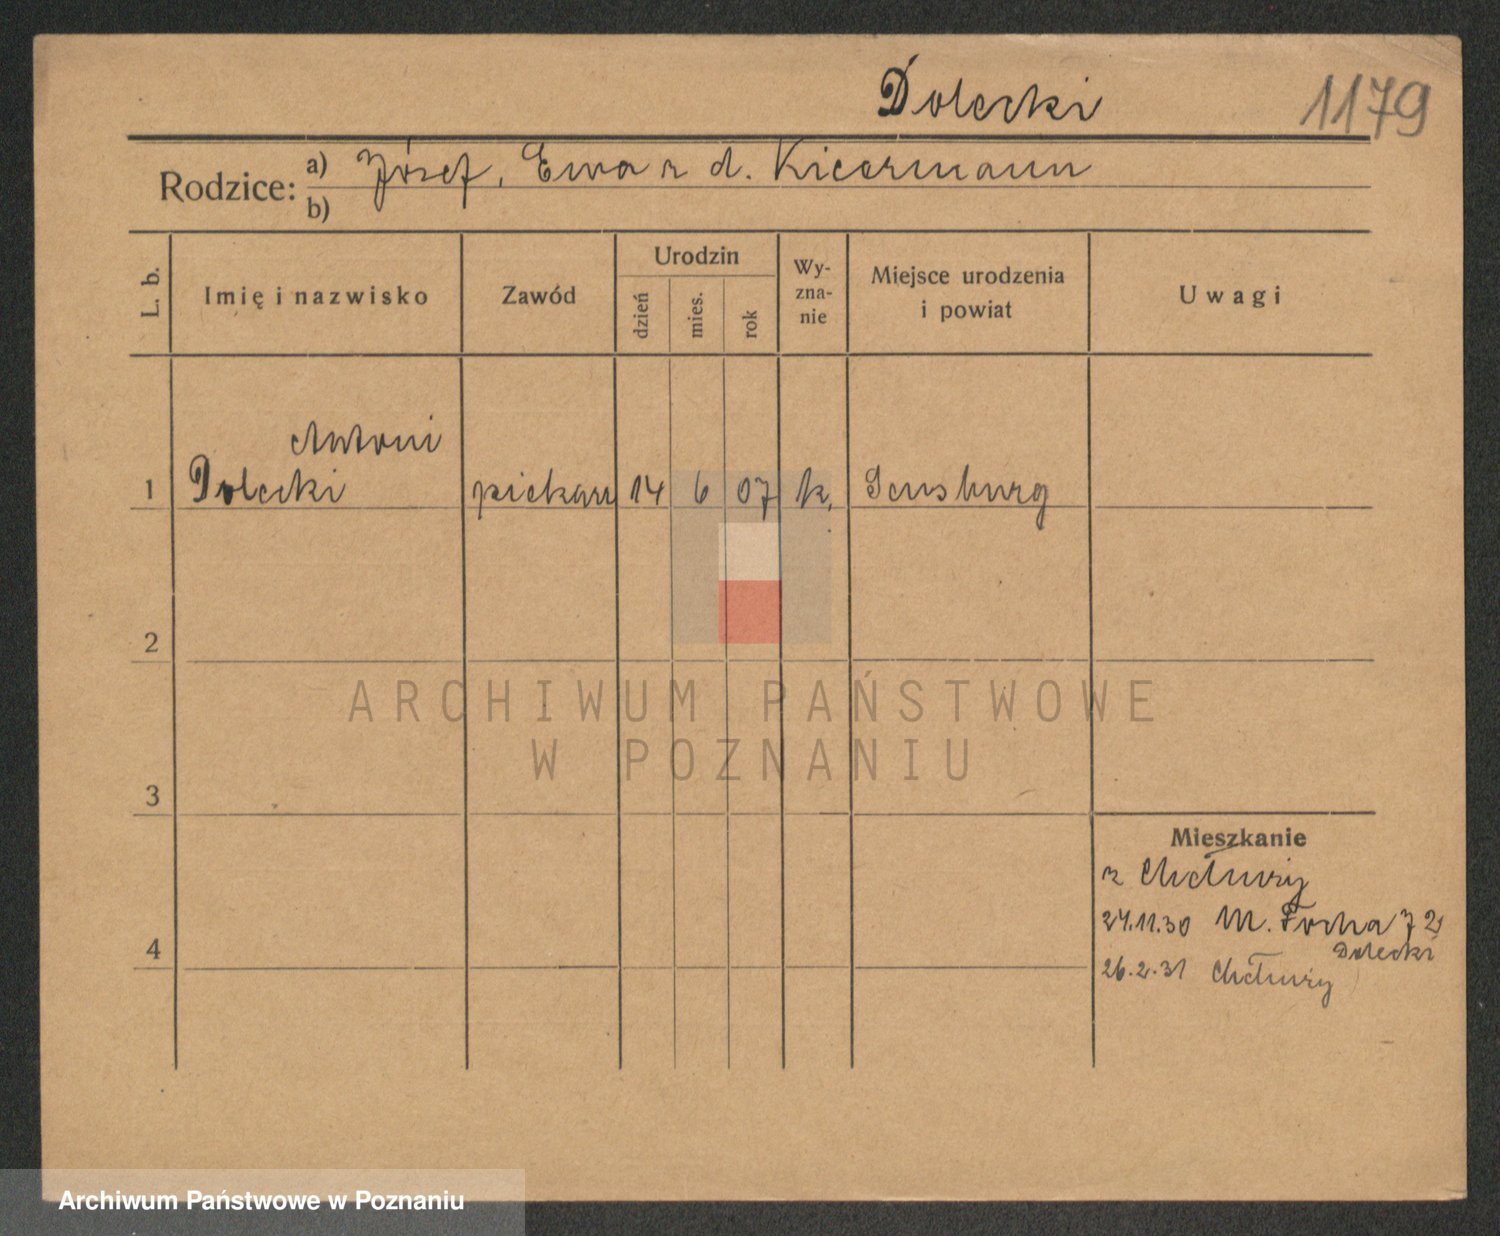 Dolecki 1179
Rodzice: a) Józef, Ewa z d. Kicermann
b)
L. b. Imię i nazwisko Zawód Urodzin dzień mies. rok Wy-zna-nie Miejsce urodzenia i powiat Uwagi
Antoni
1 Dolecki piekarz 14 6 07 k. Sensburg
2
ARCHIWUM PAŃSTWOWE
W POZNANIU
3
Mieszkanie
z Chełmży
24.11.30 M. Focha 72
Dolecki
4
26.2.31 Chełmży
Archiwum Państwowe w Poznaniu